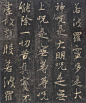 若波羅蜜多是大
神咒是大明咒是無
上咒是無等等咒能
除一切苦真實不
虛故說般若波羅